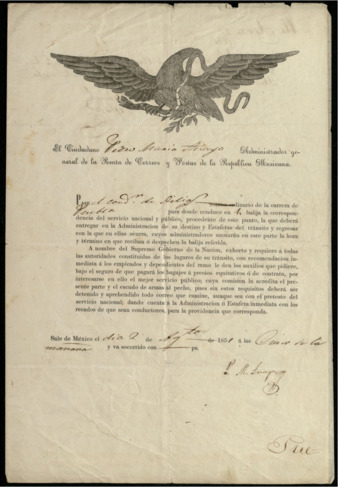 El Ciudadano Pedro Maria Anaya Administrador ge-
neral de la Renta de Correos y Postas de la República Mexicana.
ordinario de la carrera de
para donde conduce en balija la correspon-
dencia del servicio nacional y público, procedente de este punto, la que deberá
entregar en la Administracion de su destino y Estafetas del tránsito y regresar
con la que en ellas ocurra, cuyos administradores anotarán en este parte la hora
y término en que reciban ó despachen la balija referida.
A nombre del Supremo Gobierno de la Nacion, exhorto y requiero á todas
las autoridades constituidas de los lugares de su tránsito, con recomendacion in-
mediata á los empleados y dependientes del ramo le den los auxilios que pidiere,
bajo el seguro de que pagará los bagajes á precios equitativos ó de contrata, por
interesarse en ello el mejor servicio público; cuya comision la acredita el pre-
sente parte y el escudo de armas al pecho, pues sin estos requisitos deberá ser
detenido y aprehendido todo correo que camine, aunque sea con el pretesto del
servicio nacional; dando cuenta á la Administracion ó Estafeta inmediata con los
recados de que sean conductores, para la providencia que corresponda.
Sale de México el dia 2 de Agto de 1851 á las de la
mañana y va socorrido con ps.
P. M. Anaya